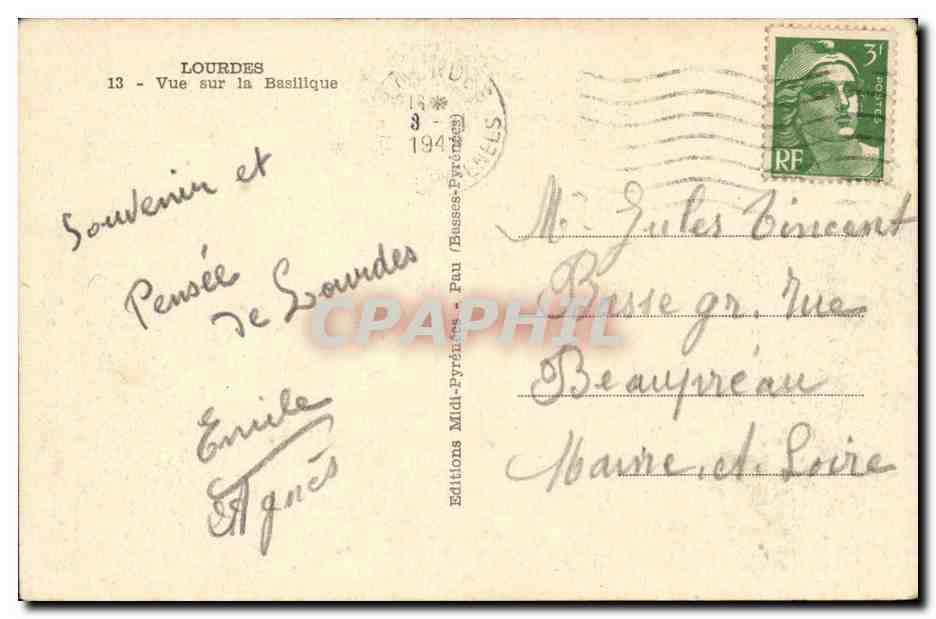 LOURDES
13 - Vue sur la Basilique
16*
3 -
194
3F
POSTES
RF
Souvenir et
Pensée
de Lourdes
Emile
Agnès
Editions Midi-Pyrénées - Pau (Basses-Pyrénées)
Mr Jules Vincent
Basse gr. rue
Beaupréau
Maine et Loire
CPAPHIL